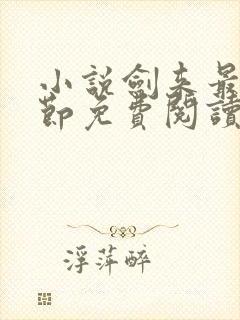 小説劍來最
節免費閱讀
浮萍醉